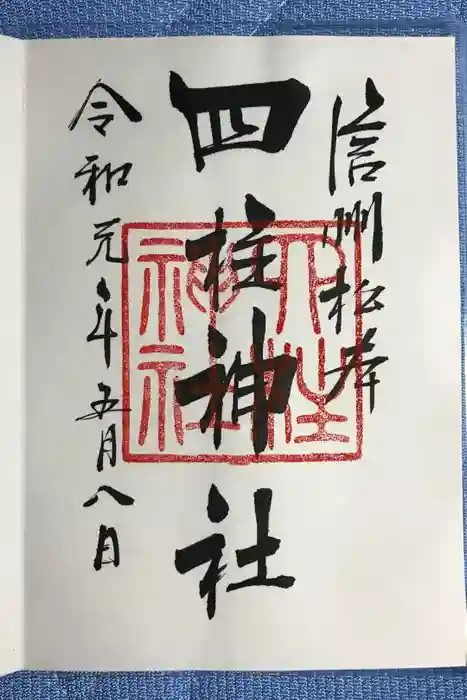 信州松本
四柱神社
令和元年五月八日
四柱
神社